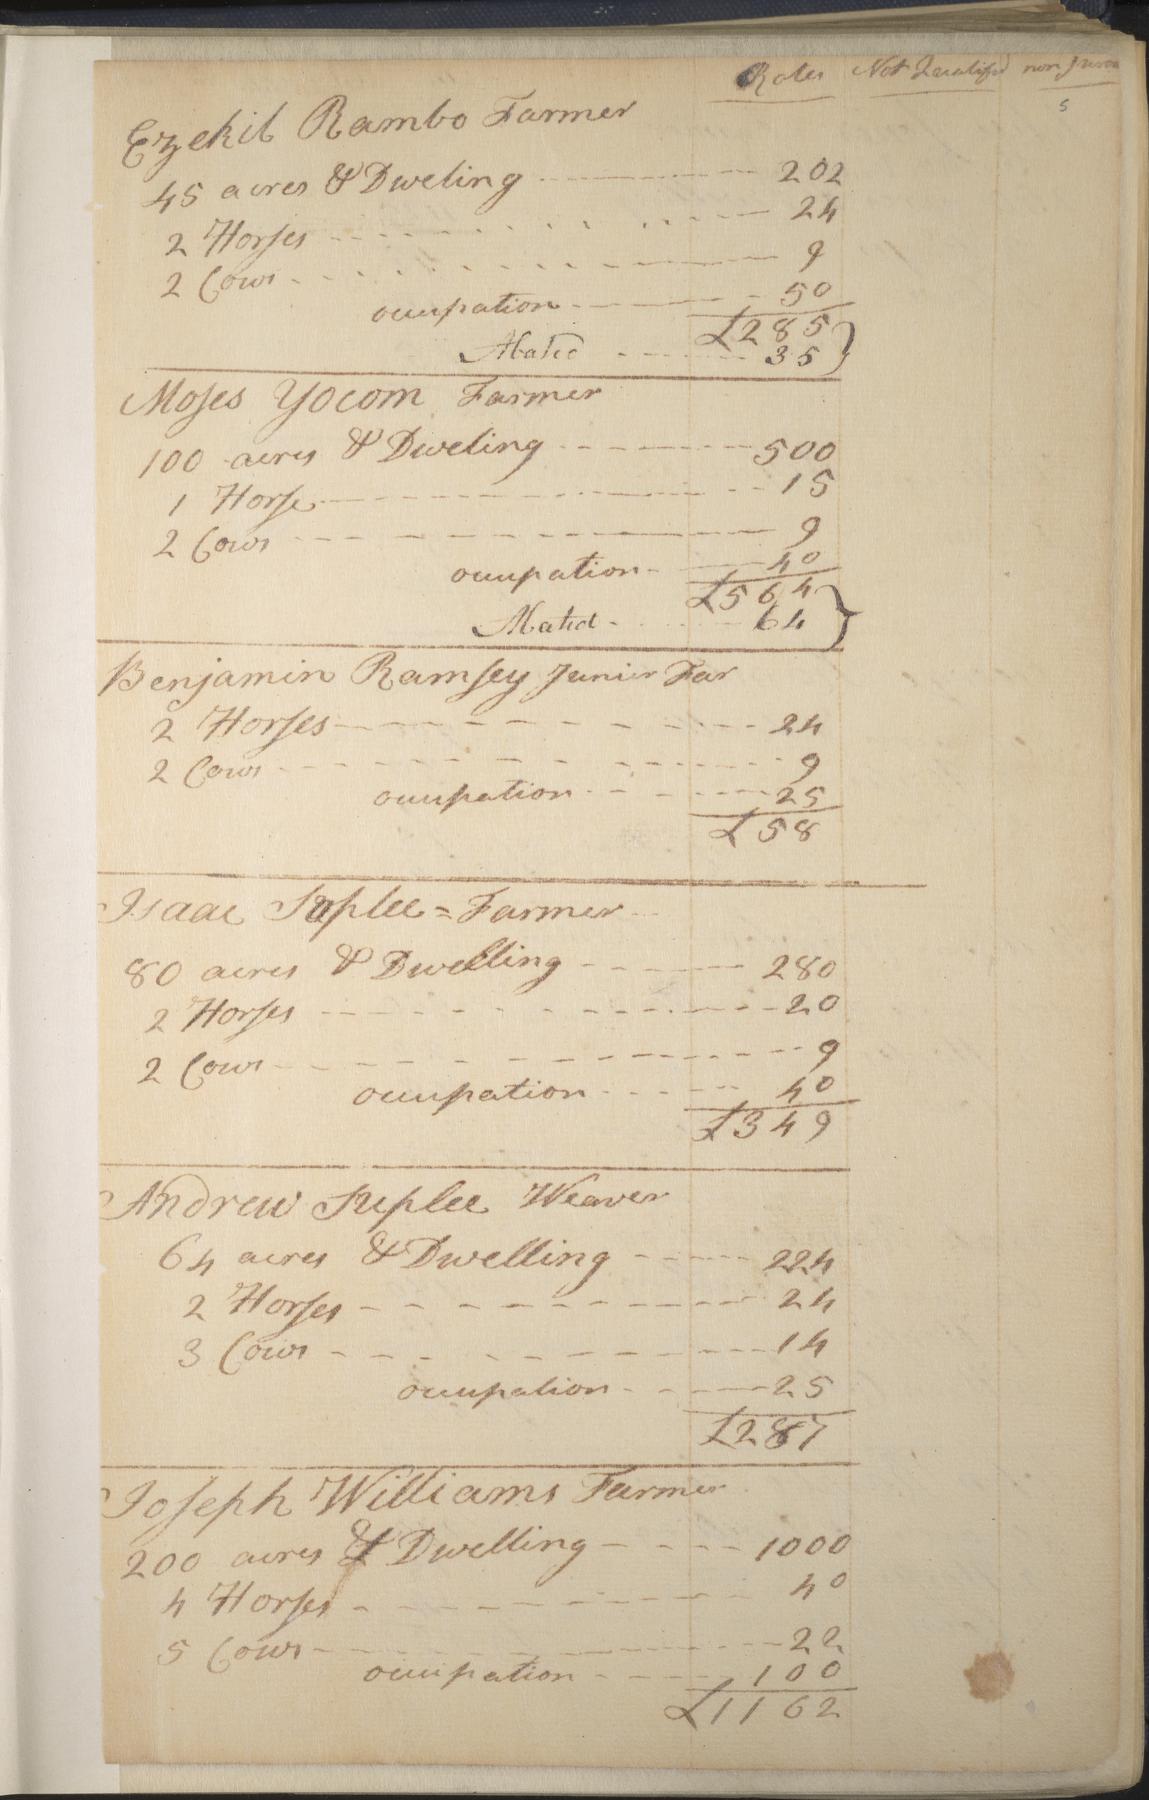 Rates Not Qualifyd non Juror
5
Ezekil Rambo Farmer
45 acres & Dweling 202
2 Horses 24
2 Cows 9
occupation 50
£285
Abated 35
Moses Yocom Farmer
100 acres & Dweling 500
1 Horse 15
2 Cows 9
occupation 40
£564
Abated 64
Benjamin Ramsey Junier Far
2 Horses 24
2 Cows 9
occupation 25
£58
Isaac Suplee = Farmer
80 acres & Dwelling 280
2 Horses 20
2 Cows 9
occupation 40
£349
Andrew Suplee Weaver
64 acres & Dwelling 224
2 Horses 24
3 Cows 14
occupation 25
£287
Joseph Williams Farmer
200 acres & Dwelling 1000
4 Horses 40
5 Cows 22
occupation 100
£1162